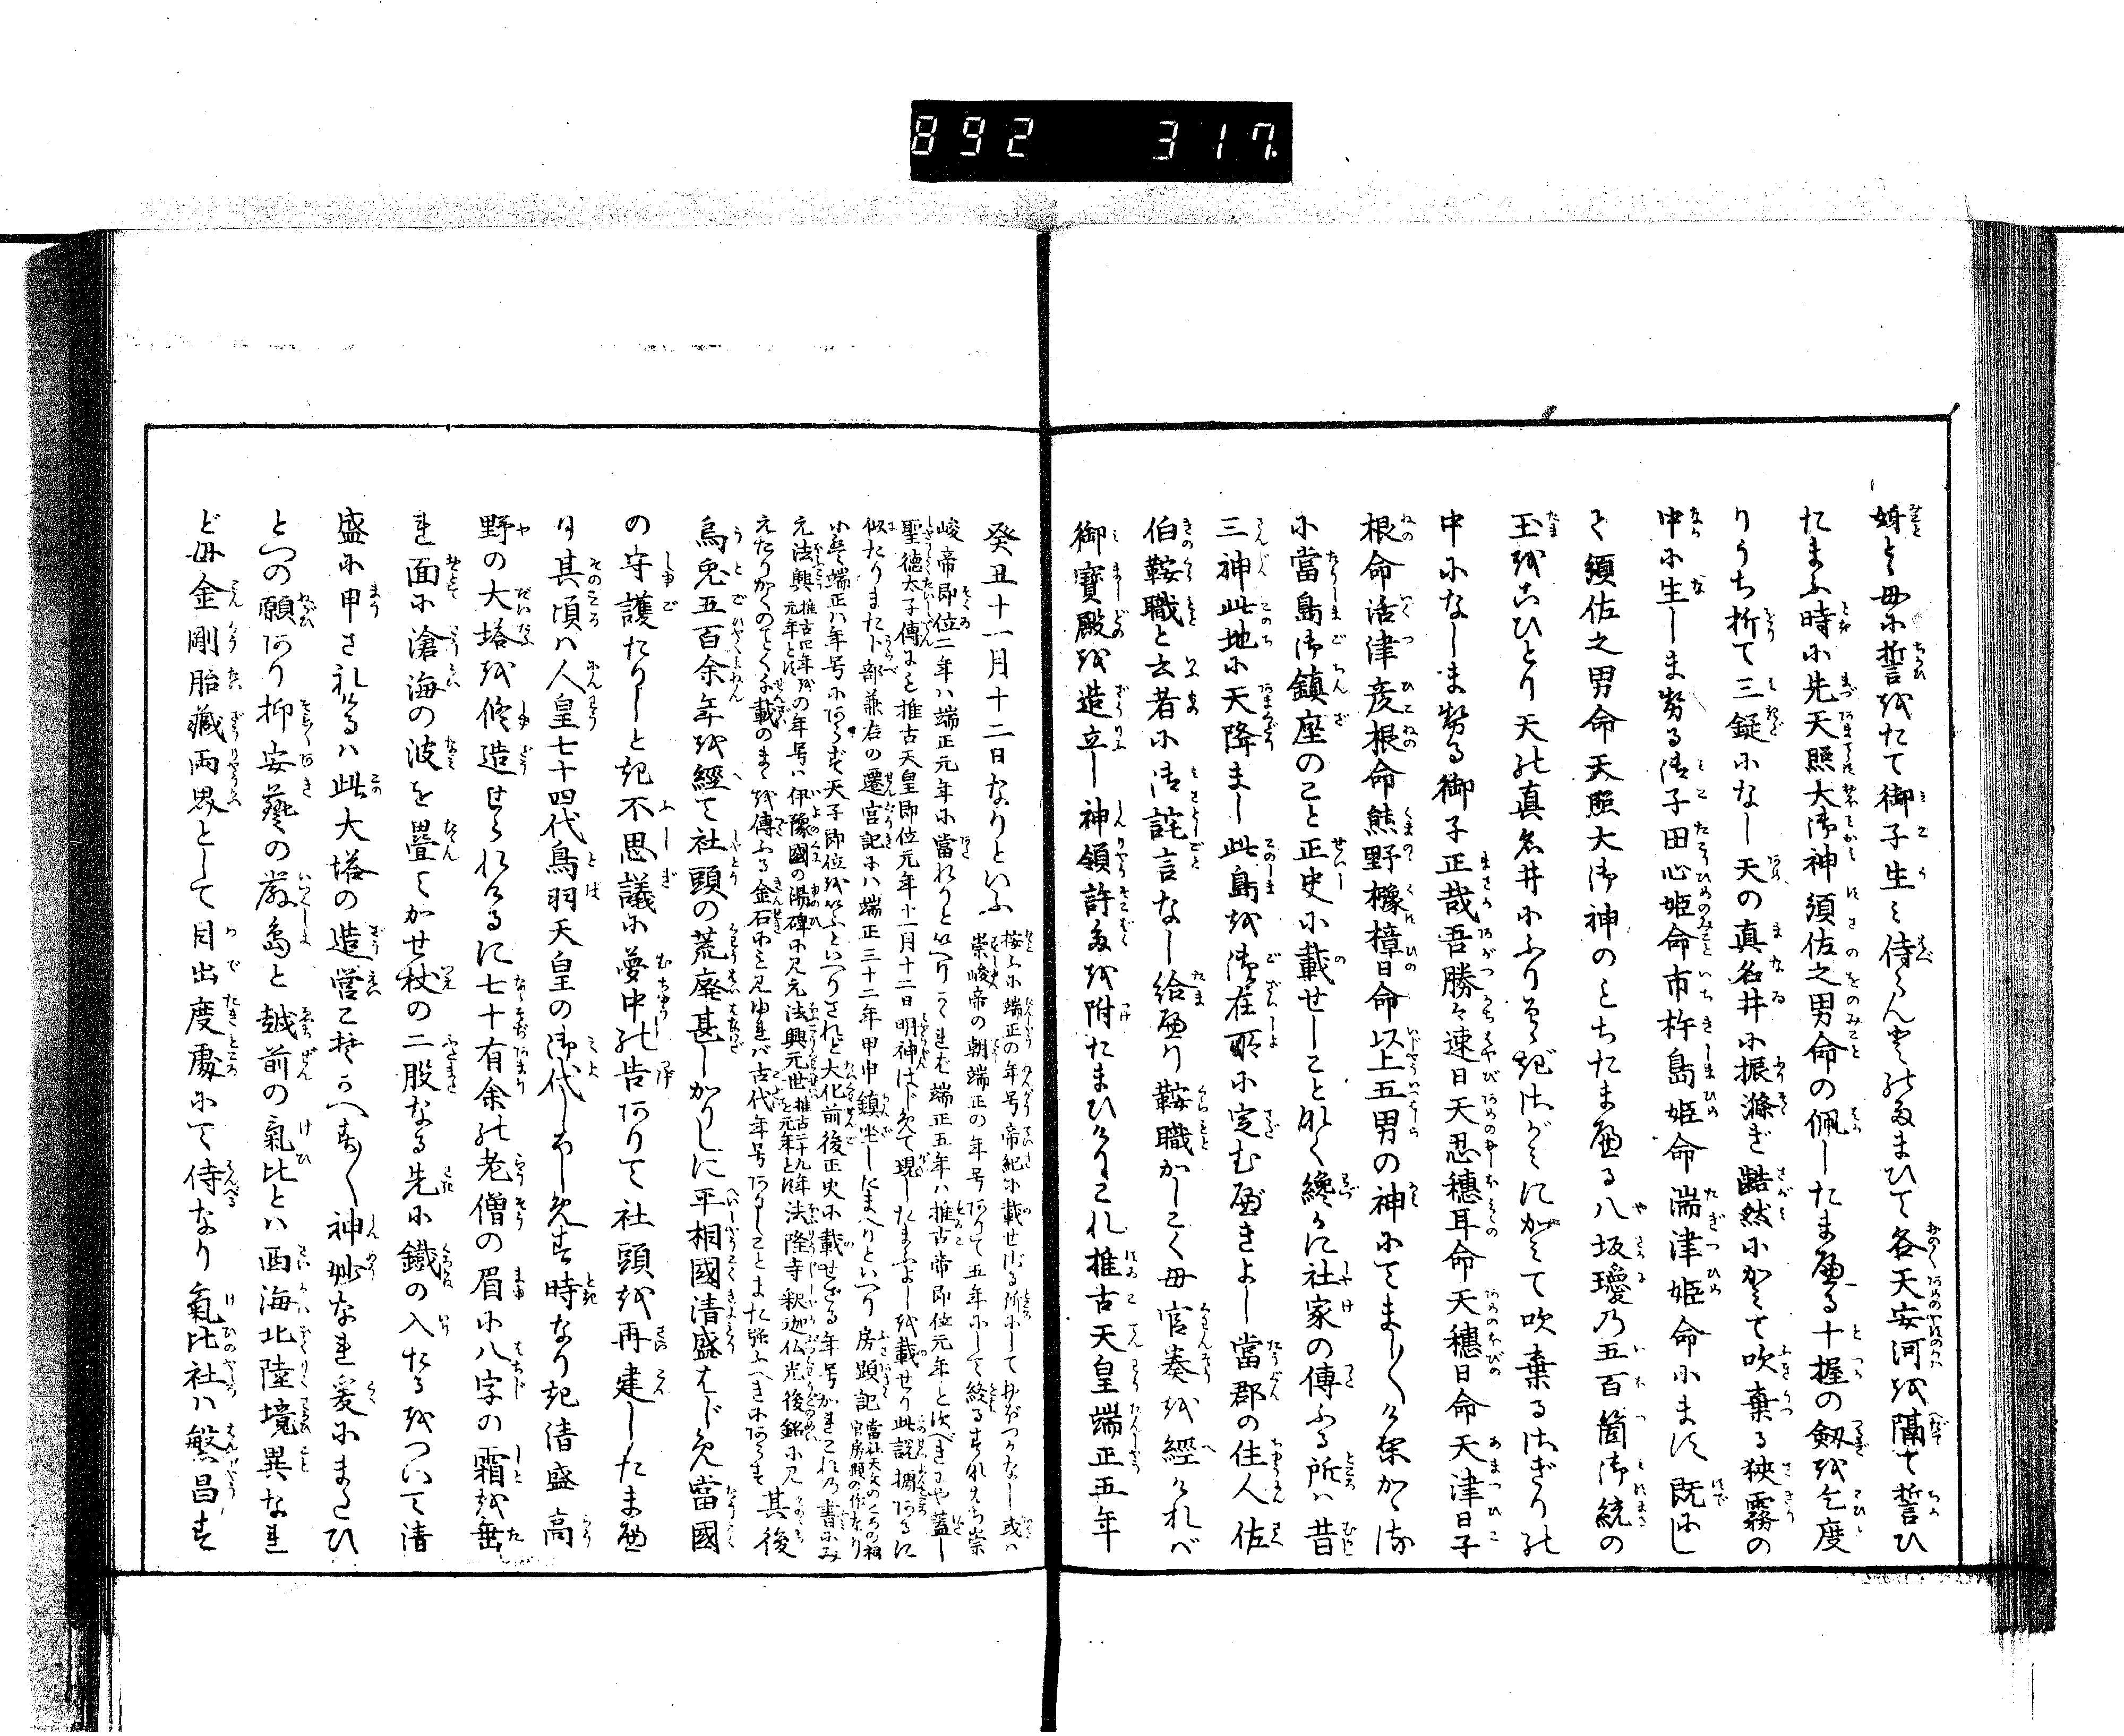 892 317
姉と母に誓をたて御子生み侍らんとのたまひて各天安河を隔て誓ひ
たまふ時に先天照大御神須佐之男命の佩したまへる十握の劔を乞度
りうち折て三錠になし天の真名井に振滌ぎ齧然にかみて吹棄る狭霧の
中に生しませる御子田心姫命市杵島姫命湍津姫命にます既にし
て須佐之男命天照大御神のみちたまへる八坂瓊乃五百箇御統の
玉をこひとり天の真名井にふりそゝぎさがみにかみて吹棄るさぎりの
中になしませる御子正哉吾勝々速日天忍穂耳命天穂日命天津日子
根命活津彦根命熊野櫲樟日命以上五男の神にてまし〳〵
に當島御鎮座のこと正史に載せしことなく纔に社家の傳ふる所ハ昔
三神此地に天降まし此島を御在所に定むべきよし當郡の住人佐
伯鞍職と云者に御詫言なし給へり鞍職かしこくも官奏を經けれバ
御寶殿を造立し神領許多を附たまひけりこれ推古天皇端正五年
癸丑十一月十二日なりといふ 按ふに端正の年号帝紀に載せざる所にしておぼつかなし或ハ
崇峻帝の朝端正の年号ありて五年にして終る
峻帝即位二年ハ端正元年に當れりといへり
端正五年ハ推古帝即位元年と
聖徳太子傳にも推古天皇即位元年十一月十二日明神はじめて現したまふよしを載せり此説拠あるに
似たりまた卜部兼右の遷宮記にハ端正三十二年甲申鎮坐したまへりといへり房顕記 當社天文のころの祠
官房顕の作なり
にも端正ハ年号にあらず天子即位をいふといへりされど大化前後正史に載せざる年号かれこれの書にみ
元法興 推古四年を
元年とす の年号ハ伊豫國の湯碑に見元法興元世 推古二十九年
を元年とす 法隆寺釈迦仏光後銘に見
えたりかくのごとく載のまゝを傳ふる金石にみえ古代年号ありしことまた強ふべきにあらず 其後
烏兎五百余年を經て社頭の荒廃甚しかりしに平相國清盛はじめ當國
の守護たりしとき不思議に夢中の告ありて社頭を再建したまへ
り其頃ハ人皇七十四代鳥羽天皇の御代しろしめす時なりき清盛高
野の大塔を修造せられけるに七十有余の老僧の眉に八字の霜を垂
れ面に滄海の波を疊てかせ杖の二股なる先に鐵の入たるをついて清
盛に申されけるハ此大塔の造営こそかへす〴〵神妙なれ爰にまたひ
とつの願あり抑安藝の嚴島と越前の氣比とハ西海北陸境異なれ
ども金剛胎藏両界として目出度處にて侍なり氣比社ハ繁昌す